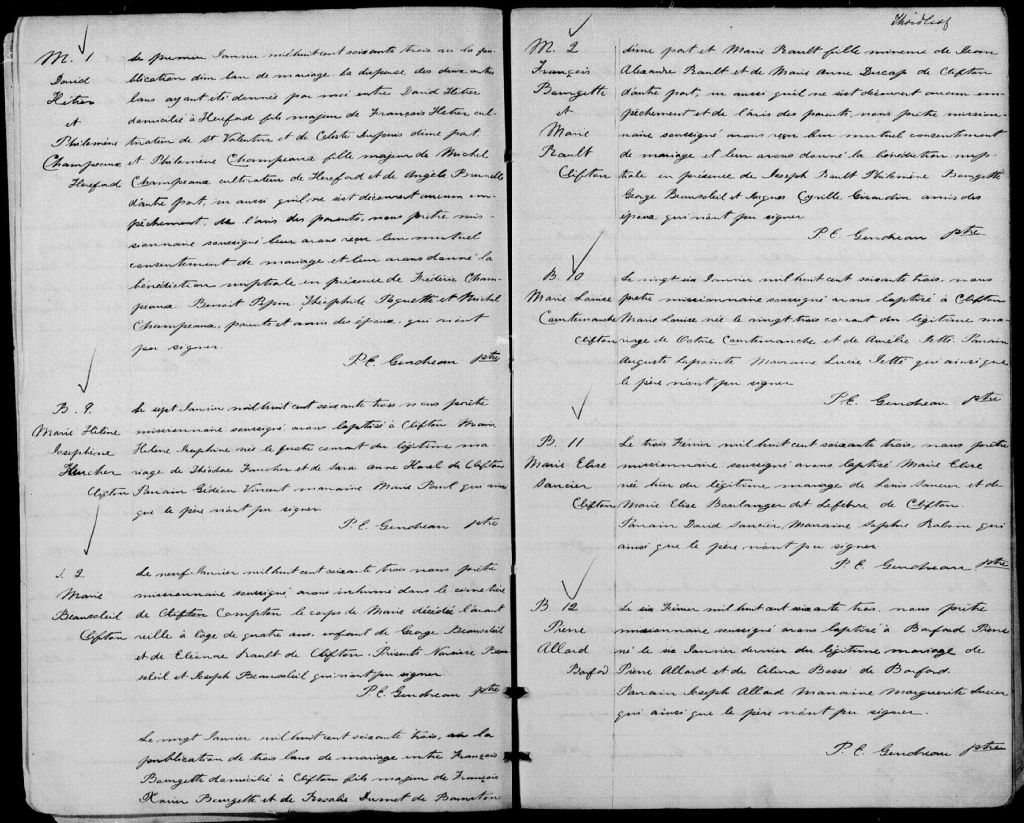 M. 1
David
Hetier
et
Philomène
Champeaux
Hereford
Le premier Janvier mil huit cent soixante trois vu la pu-
blication d'un ban de mariage la dispense des deux autres
bans ayant été donnée par moi entre David Hetier
domicilié à Hereford fils majeur de François Hetier cul-
tivateur de St Valentin et de Celeste Dupuis d'une part,
et Philomène Champeaux fille majeur de Michel
Champeaux cultivateur de Hereford et de Angèle Brunelle
d'autre part, vu aussi qu'il ne s'est découvert aucun em-
pêchement, de l'avis des parents, nous prêtre mis-
sionnaire soussigné leur avons reçu leur mutuel
consentement de mariage et leur avons donné la
bénédiction nuptiale en présence de Frédéric Cham-
peaux, Benoit Pepin, Théophile Paquette et Michel
Champeaux, parents et amis des époux, qui n'ont
pu signer.
P. E. Gendreau ptre
B. 9.
Marie Hélène
Josephine
Clifton
Le sept Janvier mil huit cent soixante trois nous prêtre
missionnaire soussigné avons baptisé à Clifton Marie
Helene Josephine née le quatre courant du légitime ma
riage de Théodore et de Sara Anne de Clifton
Parrain Gédéon Vincent marraine Marie Paul qui ainsi
que le père n'ont pu signer
P. E. Gendreau ptre
S. 2.
Marie
Beausoleil
Clifton
Le neuf Janvier mil huit cent soixante trois nous prêtre
missionnaire soussigné avons inhumé dans le cimetière
de Clifton Compton le corps de Marie décédée l'avant
veille à l'âge de quatre ans, enfant de George Beausoleil
et de Eléonore Rault de Clifton. Présents Narcisse Beau
soleil et Joseph Beausoleil qui n'ont pu signer
P. E. Gendreau ptre
Le vingt Janvier mil huit cent soixante trois, vu la
publication de trois bans de mariage entre François
Bourgette domicilié à Clifton fils majeur de François
Xavier Bourgette et de Rosalie de Barnston
Third leaf
M. 2
François
Bourgette
et
Marie
Rault
Clifton
d'une part et Marie Rault fille mineure de Jean
Alexandre Rault et de Marie Anne Ducap de Clifton
d'autre part, vu aussi qu'il ne s'est découvert aucun em-
pêchement et de l'avis des parents, nous prêtre mission-
naire soussigné avons reçu leur mutuel consentement
de mariage et leur avons donné la bénédiction nup-
tiale en présence de Joseph Rault Philomène Bourgette
George Beausoleil et Cyrille Girardin amis des
époux qui n'ont pu signer
P. E. Gendreau ptre
B. 10
Marie Louise
Courtemanche
Clifton
Le vingt six Janvier mil huit cent soixante trois, nous
prêtre missionnaire soussigné avons baptisé à Clifton
Marie Louise née le vingt trois courant du légitime ma-
riage de Octave Courtemanche et de Aurélie Jetté. Parrain
Auguste Lapointe Marraine Lucie Jetté qui ainsi que
le père n'ont pu signer
P. E. Gendreau ptre
B. 11
Marie Elise
Sancier
Clifton
Le trois Février mil huit cent soixante trois, nous prêtre
missionnaire soussigné avons baptisé Marie Elise
née hier du légitime mariage de Louis Sancier et de
Marie Elise Boulanger dit Lefebvre de Clifton.
Parrain David Sancier, Marraine Sophie qui
ainsi que le père n'ont pu signer
P. E. Gendreau ptre
B 12
Pierre
Allard
Barford
Le six Février mil huit cent soixante trois, nous prêtre
missionnaire soussigné avons baptisé à Barford Pierre
né le six Janvier dernier du légitime mariage de
Pierre Allard et de Célina Bossé de Barford.
Parrain Joseph Allard Marraine Marguerite
qui ainsi que le père n'ont pu signer.
P. E. Gendreau ptre